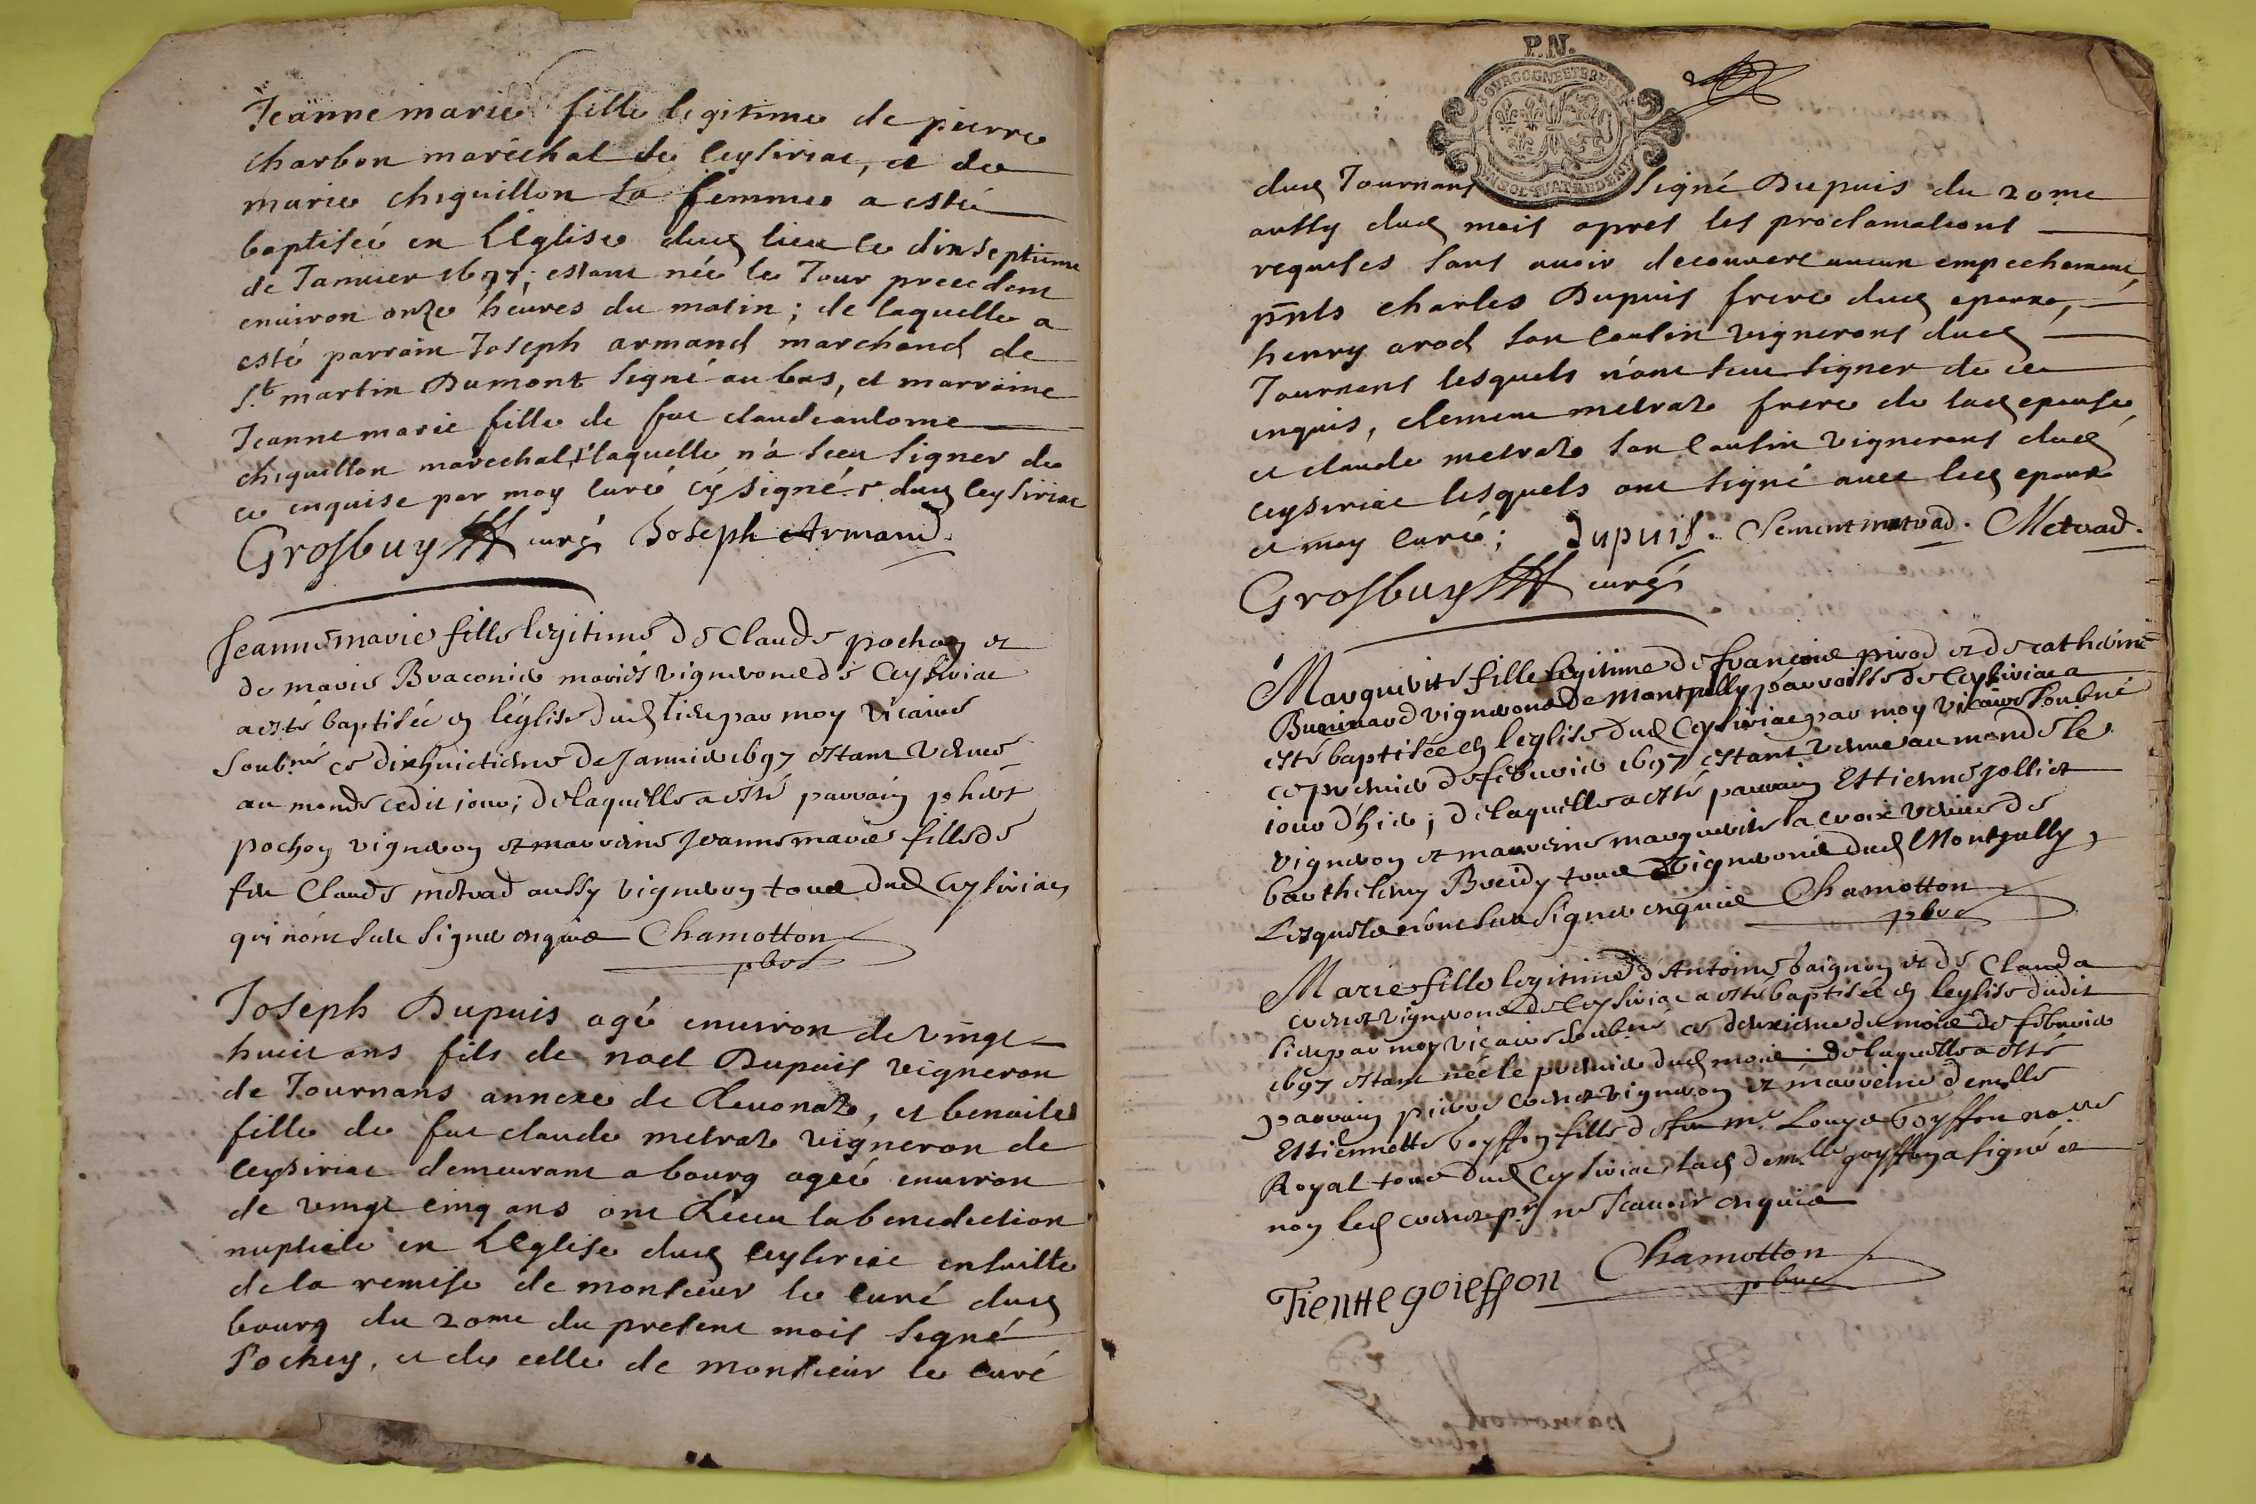 Jeanne marie fille legitime de pierre
charbon maréchal de Ceysiriac, et de
marie chiquillon sa femme a esté
baptisée en l'Eglise dud lieu le dixseptieme
de Januier 1697, estant née le Jour precedent
enuiron onze heures du matin; de laquelle a
esté parrain Joseph armand marchand de
St martin Dumont signé au bas, et marraine
Jeanne marie fille de feu claude antoine
chiquillon marechal laquelle n'a sceu signer de
ce enquise par moy curé cy signé dud Ceysiriac
Grosbuy curé Joseph Armand.
Jeanne marie fille legitime de Claude pochon et
de marie Braconier mariés vignerons de Ceysiriac
a esté baptisée en l'église dud lieu par moy vicaire
soubné ce dixhuictieme de Januier 1697 estant venue
au monde cedit jour; de laquelle a esté parrain
pochon vigneron et marreine Jeanne marie fille de
feu Claude metrad aussy vigneron tous dud Ceysiriac
qui n'ont sceu signer enquis Chamotton
pbre
Joseph Dupuis agé enuiron de vingt
huit ans fils de noel Dupuis vigneron
de Journans annexe de Reuonaz, et benoite
fille de feu claude metraz vigneron de
ceysiriac demeurant a bourg agée enuiron
de vingt cinq ans ont Receu la benediction
nuptiale en l'Eglise dud ceysiriac ensuitte
de la remise de monsieur le curé dud
bourg du 20me du present mois signé
Pochey, et de celle de monsieur le curé
P.N.
BOURGOGNE ET BRESSE
dud Journans signé Dupuis du 20me
aussy dud mois apres les proclamations
requises sans auoir decouuert aucun empechement,
pnts charles Dupuis frere dud epoux,
henry arod son cousin vignerons dud
Journans lesquels n'ont sceu signer de ce
enquis, clement metraz frere de lad epouse
et claude metraz son cousin vignerons dud
ceysiriac lesquels ont signé auec led epoux
et moy curé; dupuis. Clement metrad. Metrad.
Grosbuy curé
Marguerite fille legitime de françois pirod et de catherine
vignerons de Montjully parroisse de Ceysiriac a
esté baptisée en leglise dud Ceysiriac par moy vicaire soubné
ce premier de feburier 1697 estant venue au monde le
iour d'hier; de laquelle a esté parrain Estienne jolliet
vigneron et marreine marguerite la croix veuue de
barthelemy Breidy tous vignerons dud Montjully,
Lesquels n'ont sceu signer enquis Chamotton
pbre
Marie fille legitime d'Antoine baignon et de Clauda
vignerons de Ceysiriac a esté baptisée en leglise dudit
lieu par moy vicaire soubné ce deuxieme du mois de feburier
1697 estant née le premier dud mois de laquelle a esté
parrain pierre vigneron et marreine demlle
Estiennette goyffon fille de feu mr Louys goyffon
Royal tous dud Ceysiriac lad demlle goyffon a signé et
non led ne scauoir enquis
Tientte goieffon Chamotton
pbre